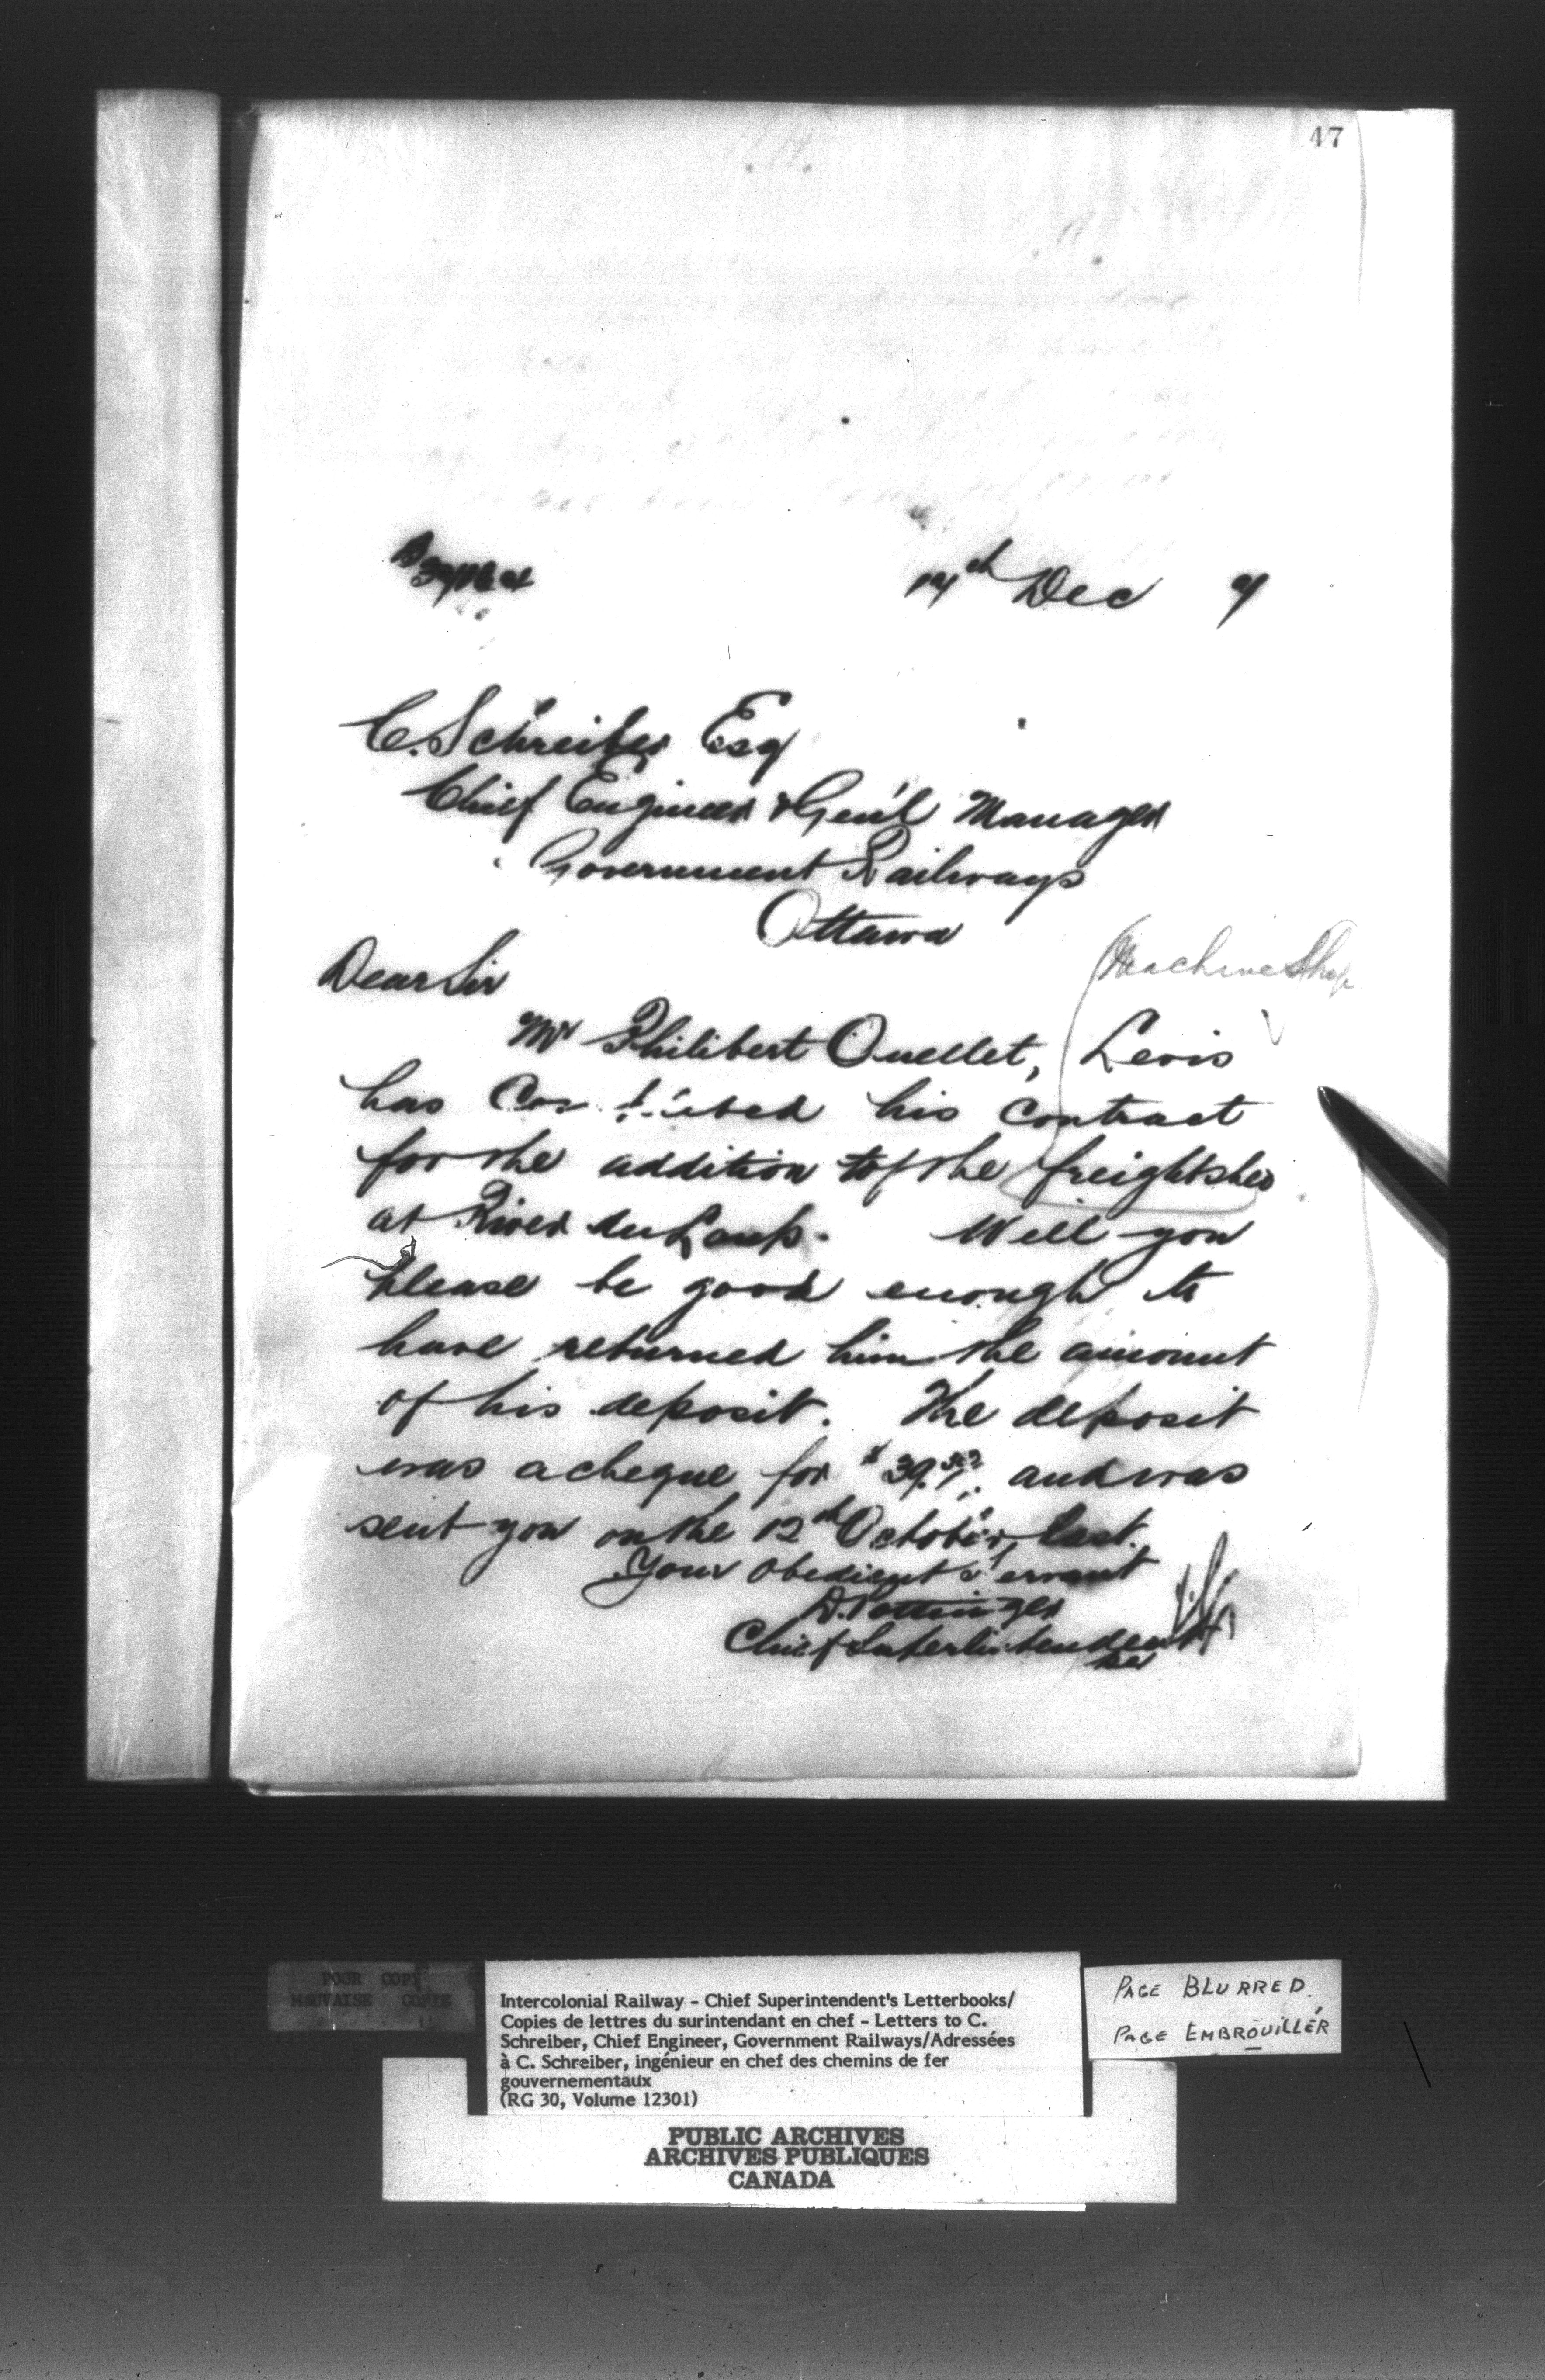 47
14th Dec 9
C. Schreiber Esq
Chief Engineer & Gen'l Manager
Government Railways
Ottawa
Machine Shop
Dear Sir
Mr Philibert Ouellet, Levis
has his contract
for the addition to the freight shed
at River du Loup. Will you
please be good enough to
have returned him the amount
of his deposit. The deposit
was a cheque for and was
sent you on the 12th October, last.
Your Obedient Servant
D. Pottinger
Chief Superintendent
POOR COPY
MAUVAISE COPIE
Intercolonial Railway - Chief Superintendent's Letterbooks/
Copies de lettres du surintendant en chef - Letters to C.
Schreiber, Chief Engineer, Government Railways/Adressées
à C. Schreiber, ingénieur en chef des chemins de fer
gouvernementaux
(RG 30, Volume 12301)
PAGE BLURRED.
PAGE EMBROUILLÉR
PUBLIC ARCHIVES
ARCHIVES PUBLIQUES
CANADA